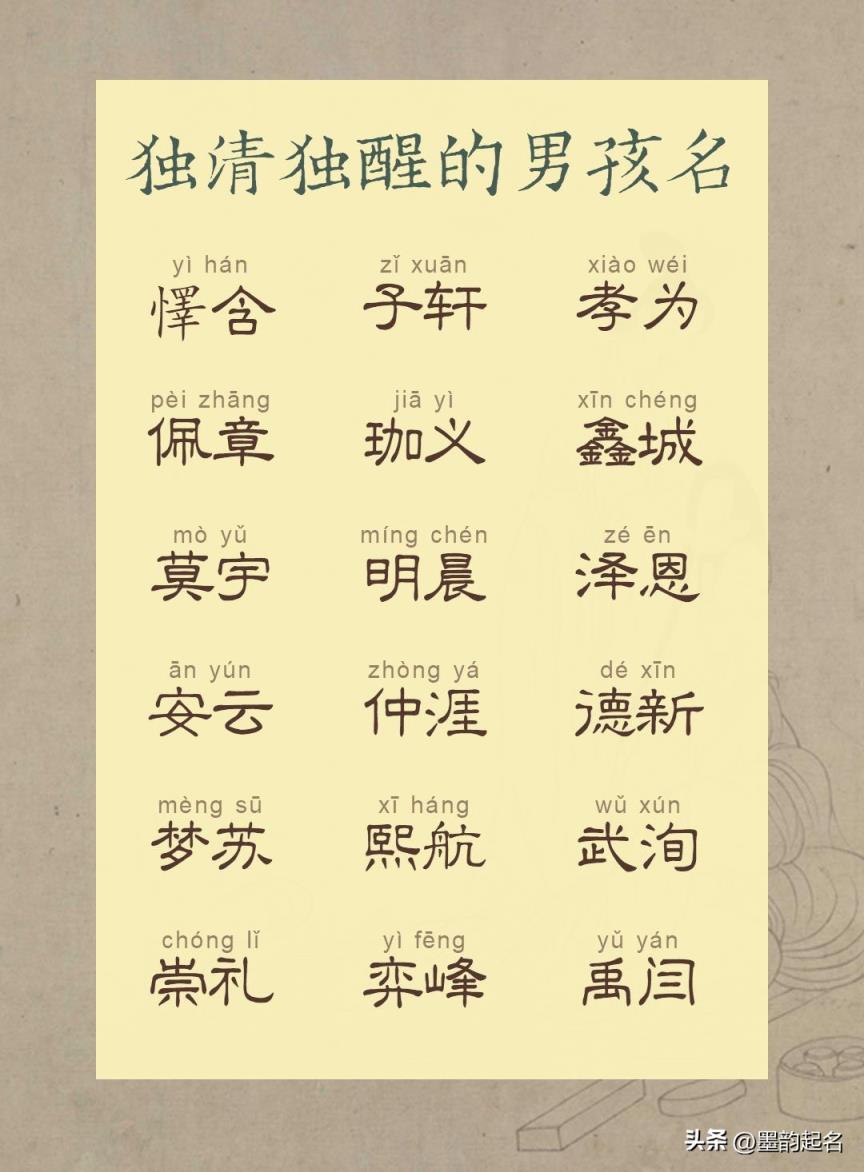 独清独醒的男孩名
yì hán zǐ xuān xiào wéi
怿含 子轩 孝为
pèi zhāng jiā yì xīn chéng
佩章 珈义 鑫城
mò yǔ míng chén zé ēn
莫宇 明晨 泽恩
ān yún zhòng yá dé xīn
安云 仲涯 德新
mèng sū xī háng wǔ xún
梦苏 熙航 武洵
chóng lǐ yì fēng yǔ yán
崇礼 弈峰 禹闫
头条 @墨韵起名